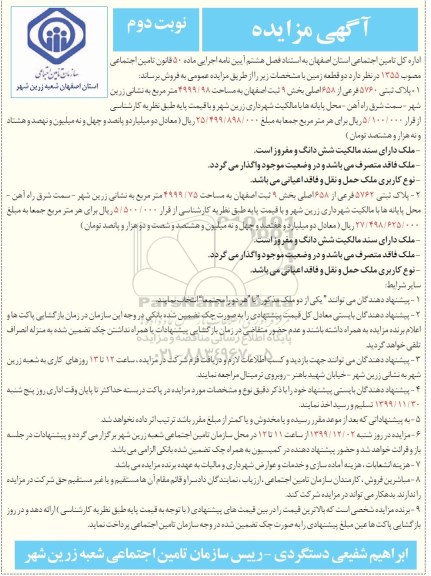 آگهی مزایده
نوبت دوم
سازمان تامین اجتماعی
استان اصفهان شعبه زرین شهر
اداره کل تامین اجتماعی استان اصفهان به استناد فصل هشتم آیین نامه اجرایی ماده ۵۰ قانون تامین اجتماعی
مصوب ۱۳۵۵ در نظر دارد دو قطعه زمین با مشخصات زیر را از طریق مزایده عمومی به فروش برساند:
۱- پلاک ثبتی ۵۷۶۰ فرعی از ۶۵۸ اصلی بخش ۹ ثبت اصفهان به مساحت ۴۹۹۹/۹۸ متر مربع به نشانی زرین
شهر - سمت شرق راه آهن - محل پایانه ها با مالکیت شهرداری زرین شهر و با قیمت پایه طبق نظریه کارشناسی
از قرار ۵/۱۰۰/۰۰۰ ریال برای هر متر مربع جمعا به مبلغ ۲۵/۴۹۹/۸۹۸/۰۰۰ ریال (معادل دو میلیارد و پانصد و چهل و نه میلیون و نهصد و هشتاد
و نه هزار و هشتصد تومان)
- ملک دارای سند مالکیت شش دانگ و مفروز است.
- ملک فاقد متصرف می باشد و در وضعیت موجود واگذار می گردد.
- نوع کاربری ملک حمل و نقل و فاقد اعیانی می باشد.
۲- پلاک ثبتی ۵۷۶۲ فرعی از ۶۵۸ اصلی بخش ۹ ثبت اصفهان به مساحت ۴۹۹۹/۷۵ متر مربع به نشانی زرین شهر - سمت شرق راه آهن -
محل پایانه ها با مالکیت شهرداری زرین شهر و با قیمت پایه طبق نظریه کارشناسی از قرار ۵/۵۰۰/۰۰۰ ریال برای هر متر مربع جمعا به مبلغ
۲۷/۴۹۸/۶۲۵/۰۰۰ ریال (معادل دو میلیارد و هفتصد و چهل و نه میلیون و هشتصد و شصت و دو هزار و پانصد تومان)
- ملک دارای سند مالکیت شش دانگ و مفروز است.
- ملک فاقد متصرف می باشد و در وضعیت موجود واگذار می گردد.
- نوع کاربری ملک حمل و نقل و فاقد اعیانی می باشد.
سایر شرایط:
۱- پیشنهاد دهندگان می توانند "یکی از دو ملک مذکور" یا "هر دو را مجتمعا" انتخاب نمایند.
۲- پیشنهاد دهندگان بایستی معادل کل قیمت پیشنهادی را به صورت چک تضمین شده بانکی در وجه این سازمان در زمان بازگشایی پاکت ها و
اعلام برنده مزایده به همراه داشته باشند و عدم حضور متقاضی در زمان بازگشایی پیشنهادات یا همراه نداشتن چک تضمین شده به منزله انصراف
تلقی خواهد گردید.
۳- پیشنهاد دهندگان می توانند جهت بازدید و کسب اطلاعات لازم و دریافت فرم شرکت در مزایده، ساعت ۱۲ تا ۱۳ روزهای کاری به شعبه زرین
شهر به نشانی زرین شهر - خیابان شهید باهنر - روبروی ترمینال مراجعه نمایند.
۴- پیشنهاد دهندگان بایستی پیشنهاد خود را با ذکر دقیق نوع و مشخصات مورد مزایده در پاکت دربسته حداکثر تا پایان وقت اداری روز پنج شنبه
۱۳۹۹/۱۱/۳۰ تسلیم و رسید اخذ نمایند.
۵- به پیشنهاداتی که بعد از موعد مقرر رسیده و یا مخدوش و یا کمتر از مبلغ مقرر باشد ترتیب اثر داده نخواهد شد.
۶- مزایده در روز شنبه ۱۳۹۹/۱۲/۰۲ از ساعت ۱۱ تا ۱۲ در محل سازمان تامین اجتماعی شعبه زرین شهر برگزار می گردد و پیشنهادات در جلسه
باز و قرائت خواهد شد و حضور پیشنهاد دهنده در کمیسیون به همراه چک تضمین شده بانکی الزامی می باشد.
۷- هزینه انشعابات، هزینه آماده سازی و خدمات و عوارض شهرداری و مالیات به عهده برنده مزایده می باشد.
۸- مباشرین فروش، کارمندان سازمان تامین اجتماعی، ارزیاب، نمایندگان دادسرا و قائم مقام آن ها مستقیم و یا غیر مستقیم حق شرکت در مزایده
را ندارند. بدهکار می تواند در مزایده شرکت کند.
۹- برنده مزایده شخصی است که بالاترین قیمت را در بین قیمت های پیشنهادی (با توجه به قیمت پایه طبق نظریه کارشناسی) ارائه دهد و در روز
بازگشایی پاکت ها عین مبلغ پیشنهادی را به صورت چک تضمین شده در وجه سازمان تامین اجتماعی پرداخت نماید.
ابراهیم شفیعی دستگردی - رییس سازمان تامین اجتماعی شعبه زرین شهر